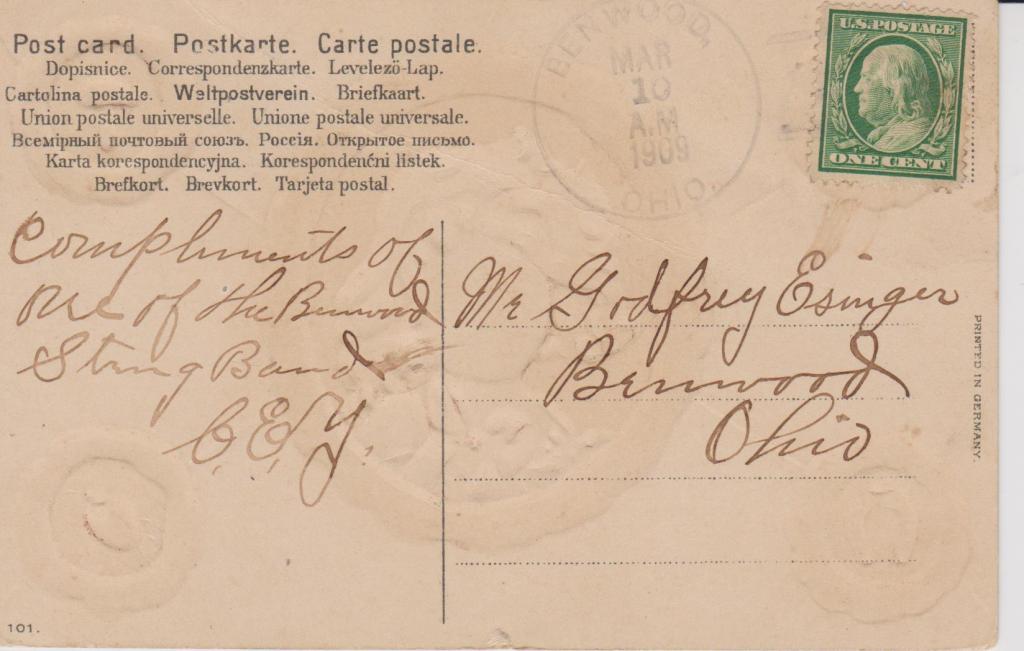 Post card. Postkarte. Carte postale.
Dopisnice. Correspondenzkarte. Levelező-Lap.
Cartolina postale. Weltpostverein. Briefkaart.
Union postale universelle. Unione postale universale.
Всемірный почтовый союзъ. Россія. Открытое письмо.
Karta korespondencyjna. Korespondenčni listek.
Brefkort. Brevkort. Tarjeta postal.
BENWOOD,
MAR
10
A.M.
1909
OHIO.
U.S. POSTAGE
ONE CENT
Compliments of
one of the Benwood
String Band
C. E. Y.
Mr Godfrey Esinger
Benwood
Ohio
PRINTED IN GERMANY.
101.